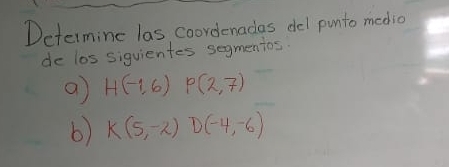 Determine las coordenadas del punto medio
de los siguientes segmentos:
a) H(-1,6) P(2,7)
b) K(5,-2) D(-4,-6)